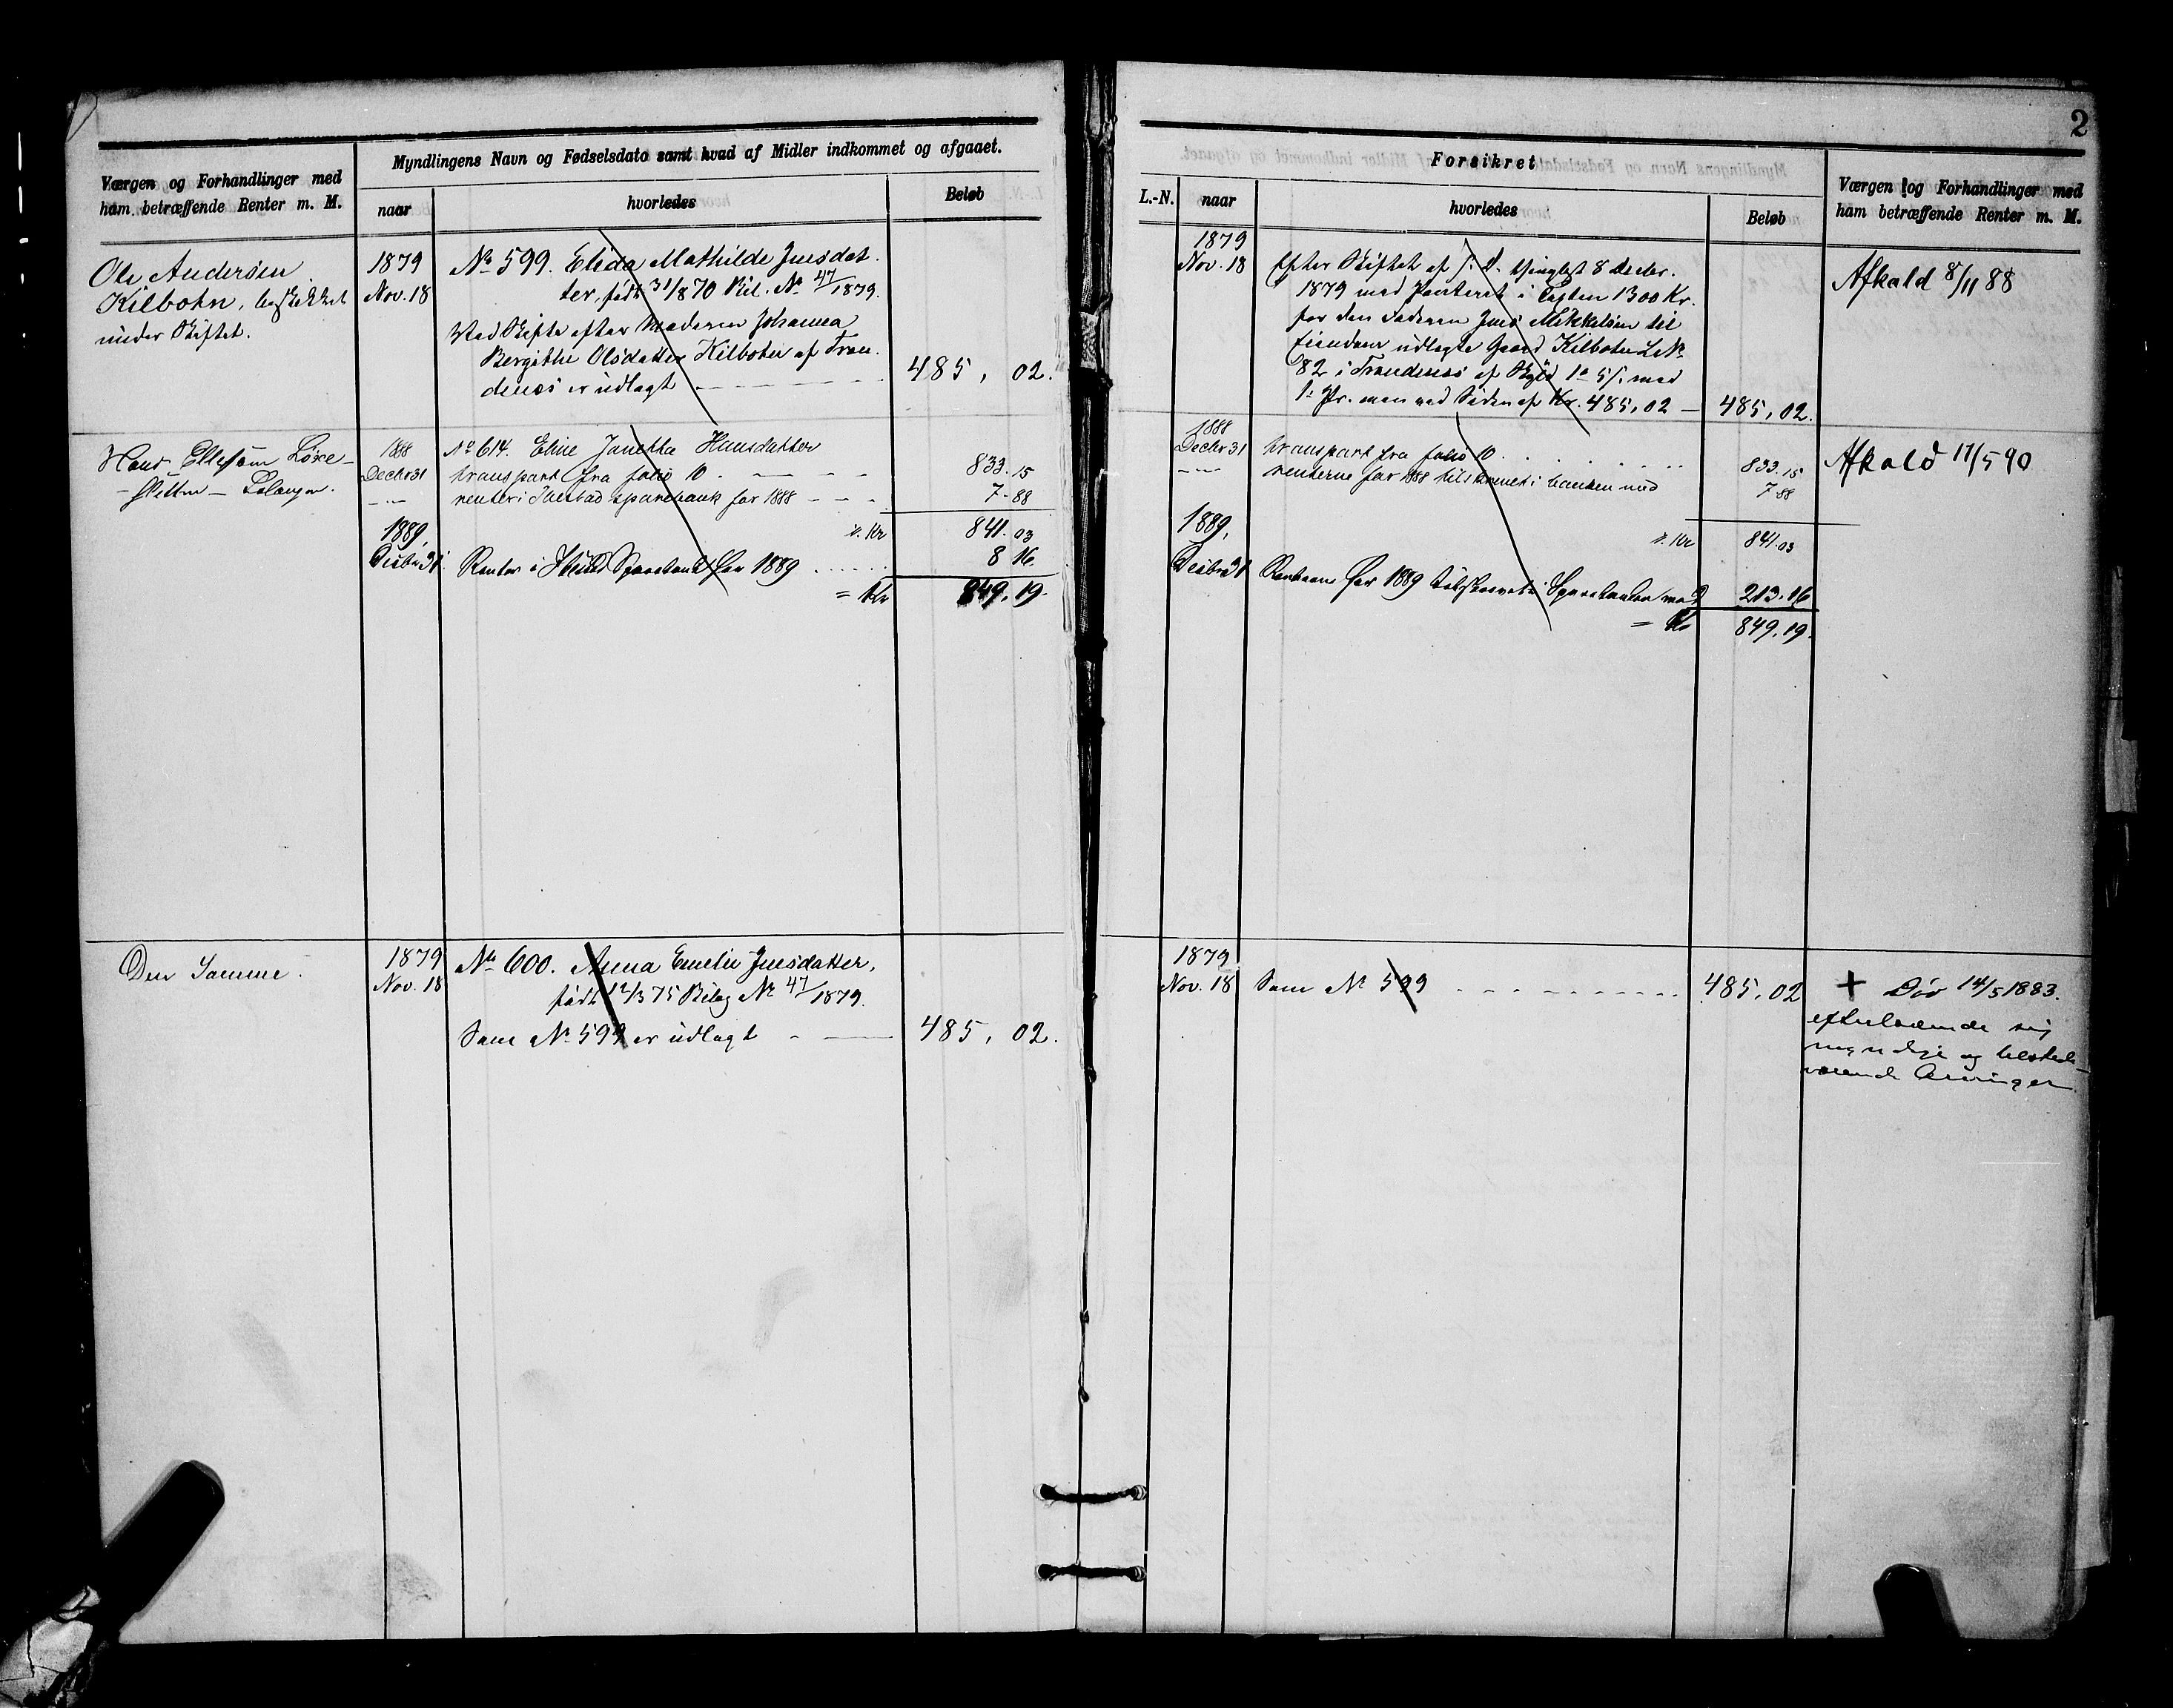 Værgen og Forhandlinger med
ham betræffende Renter m. M.
Myndlingens Navn og Fødselsdato samt hvad af Midler indkommet og afgaaet.
naar
hvorledes
Beløb
Ole Andersen
Kilbotn, beskikket
under Skiftet.
1879
Nov. 18
No 599. Elida Mathilde Jensdat-
ter, født 31/8 70 Bil. No 47/1879.
Ved Skifte efter Moderen Johanna
Bergitte Olsdatter Kilbotn af Tron-
denes er udlagt
485, 02.
Hans Ellefsen Løxe-
1888
Decbr 31
No 614. Eline Janetha Hansdatter
transport fra folio 10
833.15
renter i Ibestad Sparebank for 1888
7-88
Kr
841.03
1889,
Decbr 31
Renter i Ibestad Sparebank for 1889
8 16.
= Kr
849,19.
Den Samme.
1879
Nov. 18
No 600. Anna Emelie Jensdatter,
født 12/3 75 Bilag No 47/1879.
Som No 599 er udlagt
485, 02.
2
Forsikret
L.-N.
naar
hvorledes
Beløb
Værgen og Forhandlinger med
ham betræffende Renter m. M.
1879
Nov. 18
Efter Skiftet af s. D. thinglyst 8 Decbr.
1879 med Panteret i Taxten 1300 Kr.
for den Faderen Jens Mikkelsen til
Eiendom udlagte Gaard Kilbotn L No
82 i Trondenes af Skyld 1 5 med
1. Pr. men ved Siden af Kr. 485,02
485,02.
Afkald 8/11 88
1888
Decbr 31
transport fra folio 10
833.15
renterne for 1888 tilskrevet i banken med
7 88
Kr
841.03
Afkald 17/5 90
1889,
Decbr 31
Renterne for 1889 tilskrevet i Sparebanken med
213.16
= Kr
849.19.
1879
Nov. 18
Som No 599
485,02
+ Død 14/5 1883.
efterladende sig
myndige og tilstede-
værende Arvinger